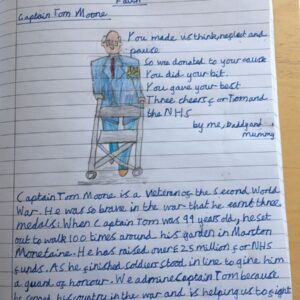 Captain Tom Moore.
You made us think, reflect and
pause
So we donated to your cause
You did your bit.
You gave your best
Three cheers for Tom and
the NHS
by me, Daddy and
mummy
Captain Tom Moore is a Veteran of the Second World
War. He was so brave in the war that he earnt three
medals. When Captain Tom was 99 years old, he set
out to walk 100 times around his garden in Marston
Moretaine. He has raised over £25 million for NHS
funds. As he finished soldiers stood in line to give him
a guard of honour. We admire Captain Tom because
he served his country in the war and is helping us to fight